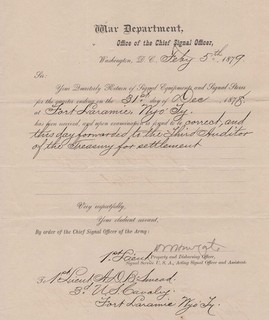 War Department,
Office of the Chief Signal Officer,
Washington, D. C. Feby 5th 1879
Sir:
Your Quarterly Return of Signal Equipments, and Signal Stores
for the quarter ending on the 31st day of Dec 1878
at Fort Laramie, Wyo Ty.
has been received, and upon examination is found to be correct, and
this day forwarded to the Third Auditor
of the Treasury for settlement
Very respectfully,
Your obedient servant,
By order of the Chief Signal Officer of the Army:
1st Lieut
Property and Disbursing Officer,
Signal Service, U. S. A., Acting Signal Officer and Assistant.
To 1st Lieut A. D. B. Smead
3d U S Cavalry
Fort Laramie Wyo Ty.